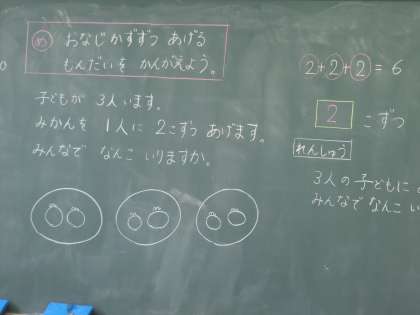 め おなじかずずつ あげる
もんだいを かんがえよう。
子どもが 3人います。
みかんを 1人に 2こずつ あげます。
みんなで なんこ いりますか。
2+2+2=6
2 こずつ
れんしゅう
3人の子どもに
みんなで なんこ い